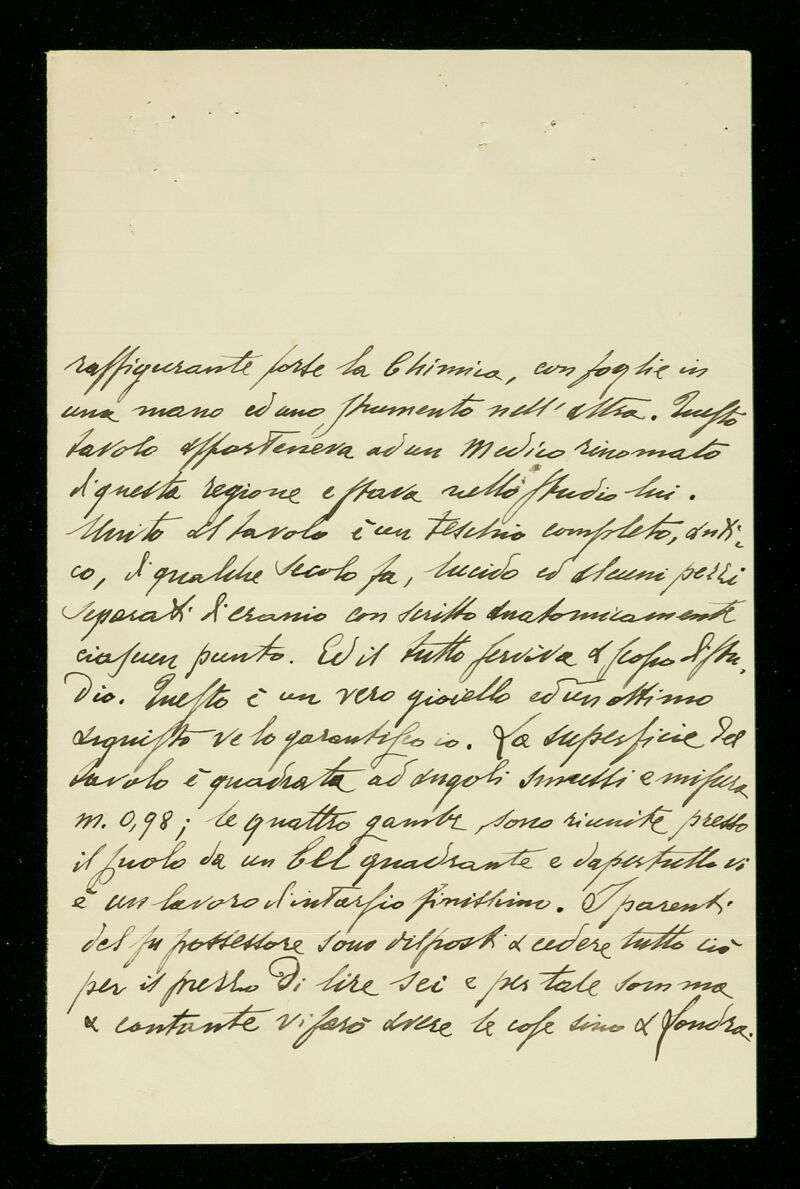 raffigurante forse la Chimica, con foglie in
una mano ed uno strumento nell'altra. Questo
tavolo apparteneva ad un Medico rinomato
di questa regione e stava nello studio lui.
Unito al tavolo è un teschio completo, anti-
co, di qualche secolo fa, lucido ed alcuni pezzi
separati di cranio con scritto anatomicamente
ciascun punto. Ed il tutto serviva a scopo di stu-
dio. Questo è un vero gioiello ed un ottimo
acquisto ve lo garantisco io. La superficie del
tavolo è quadrata ad angoli smussi e misura
m. 0,98; le quattro gambe sono riunite presso
il suolo da un bel quadrante e dapertutto vi
è un lavoro d'intarsio finissimo. I parenti
del fu possessore sono disposti a cedere tutto ciò
per il prezzo di lire sei e per tale somma
a contante vi farò avere le cose sino a Londra.